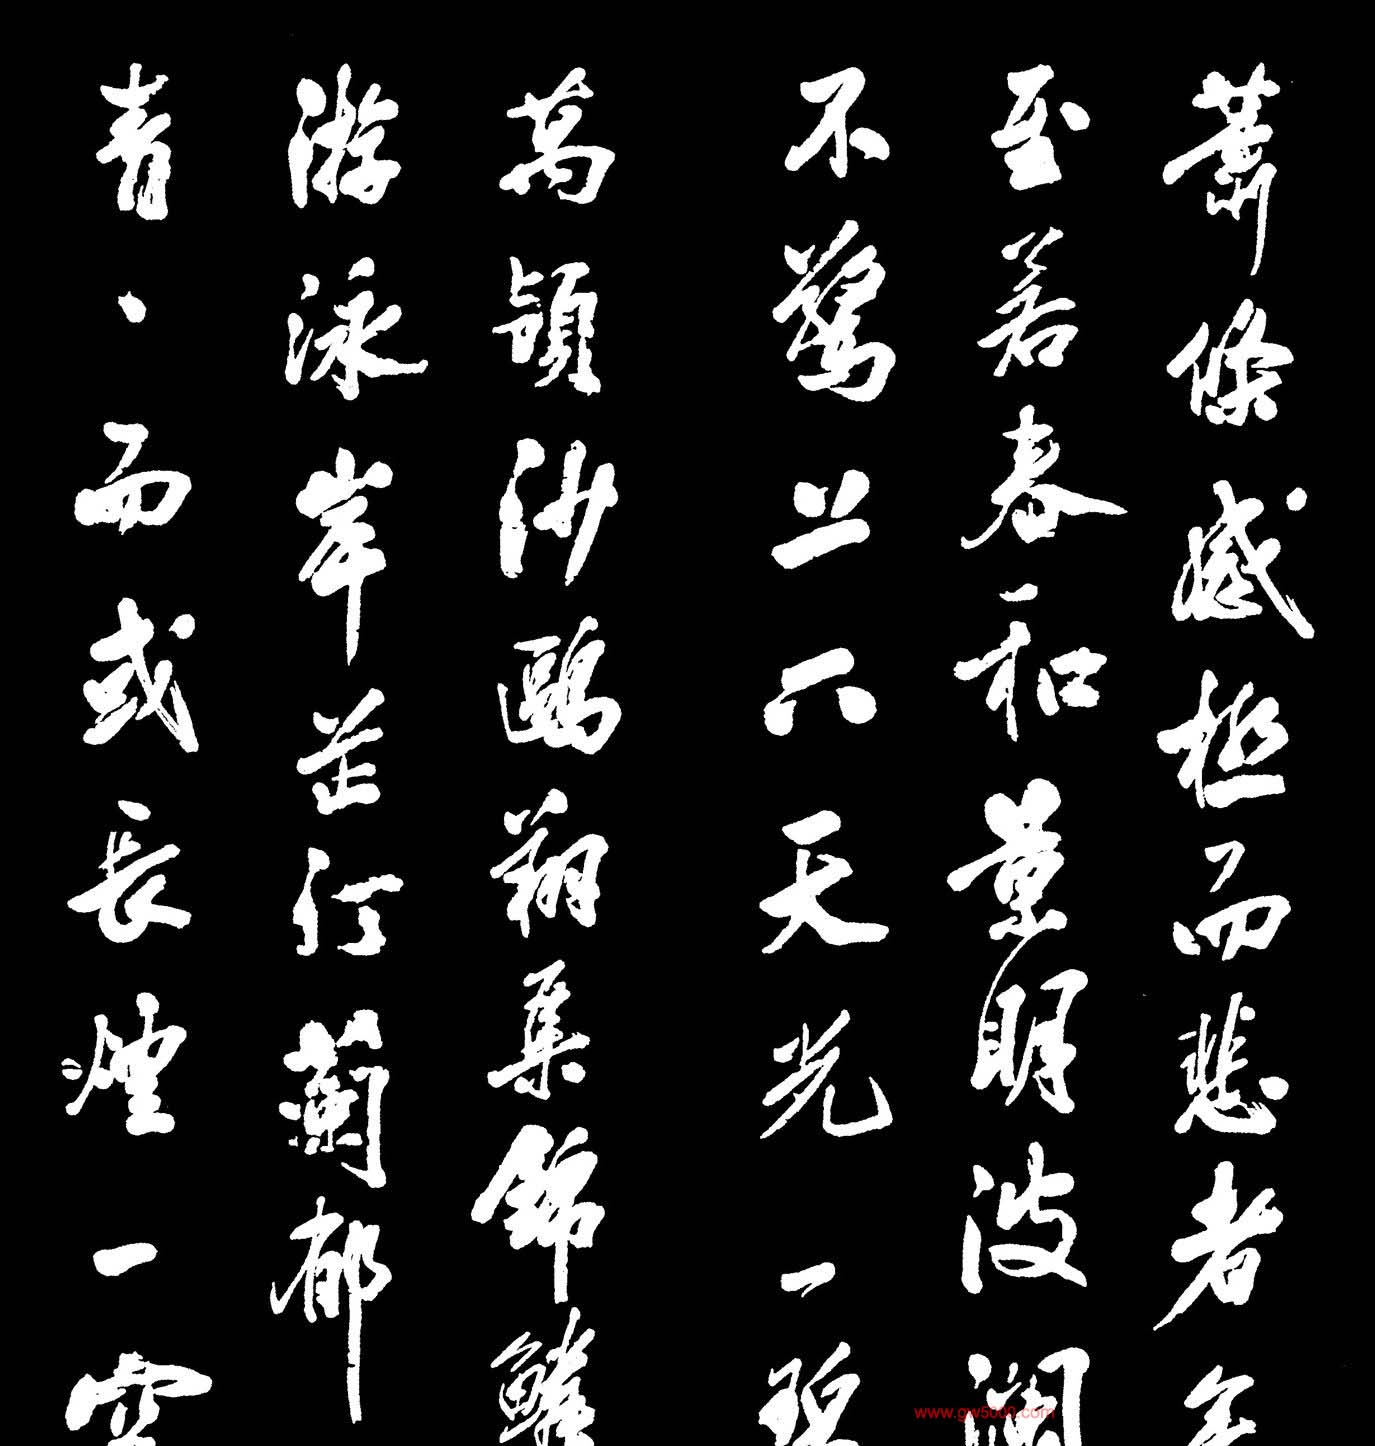 蕭條感極而悲者矣
至若春和景明波瀾
不驚上下天光一碧
萬頃沙鷗翔集錦鱗
游泳岸芷汀蘭郁
青、而或長煙一空
www.gw5000.com